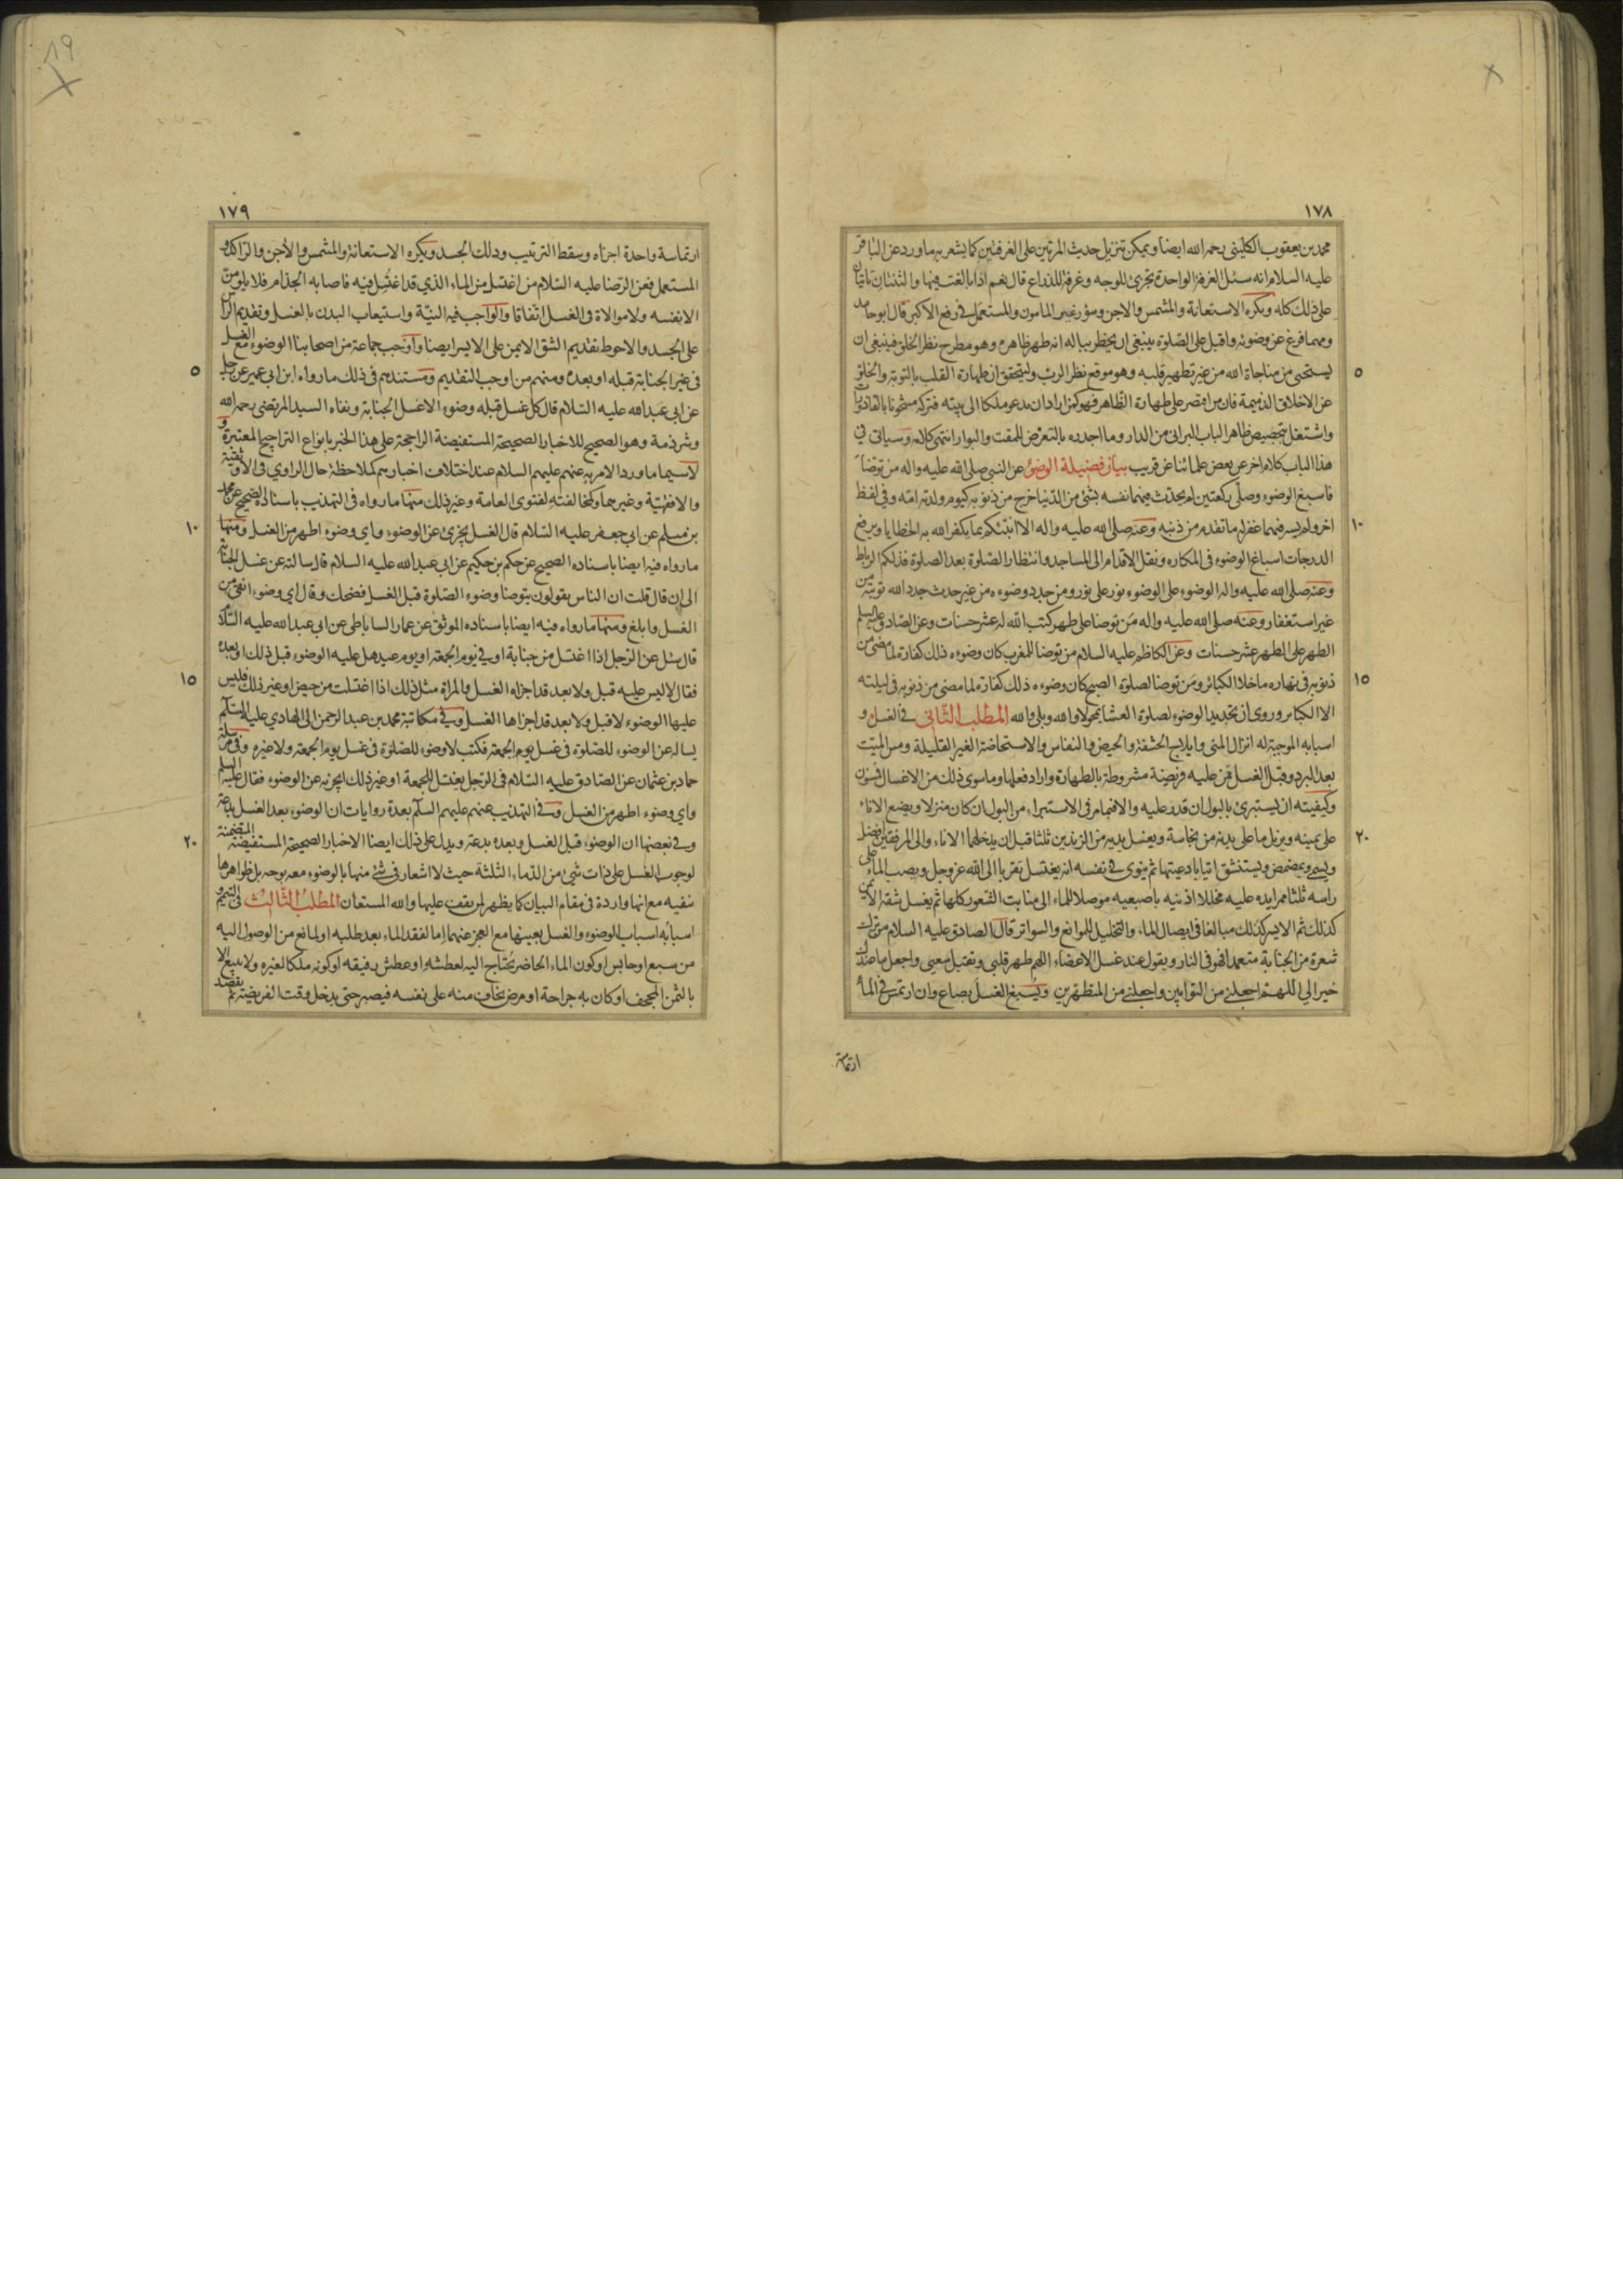 ١٧٨
محمد بن يعقوب الكليني رحمه الله ايضا ويمكن تنزيل حديث المرتين على الغرفتين كما يشعر به ما ورد عن الباقر
عليه السلام انه سئل الغرفة الواحدة تجزئ للوجه وغرفة للذراع قال نعم اذا بالغت فيها والثنتان تاتيان
على ذلك كله ويكره الاستعانة والمشمس والاجن وسؤر غير المامون والمستعمل في رفع الاكبر قال ابو حامد
ومهما فرغ عن وضوئه واقبل على الصلوة ينبغي ان يخطر بباله انه طهر ظاهره وهو مطرح نظر الخلق فينبغي ان
٥
يستحيى من مناجاة الله من غير تطهير قلبه وهو موقع نظر الرب وليتحقق ان طهارة القلب بالتوبة والخلو
عن الاخلاق الذميمة فان من اقتصر على طهارة الظاهر فهو كمن اراد ان يدعو ملكا الى بيته فتركه مشحونا بالقاذورات
واشتغل بتجصيص ظاهر الباب البراني من الدار وما اجدره بالتعرض للمقت والبوار انتهى كلامه وسياتي في
هذا الباب كلام اخر عن بعض علمائنا عن قريب بيان فضيلة الوضوء عن النبي صلى الله عليه واله من توضأ
فاسبغ الوضوء وصلى ركعتين لم يحدث فيهما نفسه بشئ من الدنيا خرج من ذنوبه كيوم ولدته امه وفي لفظ
١٠
اخر ولم يسه فيهما غفر له ما تقدم من ذنبه وعنه صلى الله عليه واله الا انبئكم بما يكفر الله به الخطايا ويرفع
الدرجات اسباغ الوضوء في المكاره ونقل الاقدام الى المساجد وانتظار الصلوة بعد الصلوة فذلكم الرباط
وعنه صلى الله عليه واله الوضوء على الوضوء نور على نور ومن جدد وضوءه من غير حدث جدد الله توبته من
غير استغفار وعنه صلى الله عليه واله من توضا على طهر كتب الله له عشر حسنات وعن الصادق عليه السلم
الطهر على الطهر عشر حسنات وعن الكاظم عليه السلام من توضا للمغرب كان وضوءه ذلك كفارة لما مضى من
١٥
ذنوبه في نهاره ما خلا الكبائر ومن توضا لصلوة الصبح كان وضوءه ذلك كفارة لما مضى من ذنوبه في ليلته
الا الكبائر وروى ان تجديد الوضوء لصلوة العشا يمحو لا والله وبلى والله المطلب الثاني في الغسل و
اسبابه الموجبة له انزال المني وايلاج الحشفة والحيض والنفاس والاستحاضة الغير القليلة ومس الميت
بعد البرد وقبل الغسل فمن عليه فريضة مشروطة بالطهارة واراد فعلها وما سوى ذلك من الاغسال فمسنون
وكيفيته ان يستبرئ بالبول ان قدر عليه والا فبما مر في الاستبراء من البول ان كان منزلا ويضع الاناء
٢٠
على يمينه ويزيل ما على بدنه من نجاسة ويغسل يديه من الزندين ثلثا قبل ان يدخلهما الاناء والى المرفقين افضل
ويسمي ويتمضمض ويستنشق اتيا بادعيتها ثم ينوى في نفسه انه يغتسل تقربا الى الله عز وجل ويصب الماء على
راسه ثلثا ممرا يده عليه مخللا اذنيه باصبعيه موصلا للماء الى منابت الشعور كلها ثم يغسل شقه الايمن
كذلك ثم الايسر كذلك مبالغا في ايصال الماء والتخليل للموانع والسواتر قال الصادق عليه السلام من ترك
شعرة من الجنابة متعمدا فهو في النار ويقول عند غسل الاعضاء اللهم طهر قلبي وتقبل سعيي واجعل ما عندك
خيرا لي اللهم اجعلني من التوابين واجعلني من المتطهرين ويسبغ الغسل بصاع وان ارتمس في الماء
ارتماسة
١٧٩
ارتماسة واحدة اجزأه وسقط الترتيب ودلك الجسد ويكره الاستعانة والمشمس والأجن والراكد و
المستعمل فعن الرضا عليه السلام من اغتسل من الماء الذي قد اغتسل فيه فاصابه الجذام فلا يلومن
الا نفسه ولا موالاة في الغسل اتفاقا والواجب فيه النية واستيعاب البدن بالغسل وتقديم الرأس
على الجسد والاحوط تقديم الشق الايمن على الايسر ايضا واوجب جماعة من اصحابنا الوضوء مع الغسل
٥
في غير الجنابة قبله او بعده ومنهم من اوجب التقديم ومستندهم في ذلك ما رواه ابن ابي عمير عن رجل
عن ابي عبد الله عليه السلام قال كل غسل قبله وضوء الا غسل الجنابة ونفاه السيد المرتضى رحمه الله
وشرذمة وهو الصحيح للاخبار الصحيحة المستفيضة الراجحة على هذا الخبر بانواع التراجيح المعتبرة و
لاسيما ما ورد الامر به عنهم عليهم السلام عند اختلاف اخبارهم كملاحظة حال الراوي في الاوثقية
والافقهية وغيرهما وكمخالفته لفتوى العامة وغير ذلك منها ما رواه في التهذيب باسناده الصحيح عن محمد
١٠
بن مسلم عن ابي جعفر عليه السلام قال الغسل يجزئ عن الوضوء واي وضوء اطهر من الغسل ومنها
ما رواه فيه ايضا باسناده الصحيح عن حكم بن حكيم عن ابي عبد الله عليه السلام قال سالته عن غسل الجنابة
الى ان قال قلت ان الناس يقولون يتوضا وضوء الصلوة قبل الغسل فضحك وقال اي وضوء انقى من
الغسل وابلغ ومنها ما رواه فيه ايضا باسناده الموثق عن عمار الساباطي عن ابي عبد الله عليه السلام
قال سئل عن الرجل اذا اغتسل من جنابة او في يوم الجمعة او يوم عيد هل عليه الوضوء قبل ذلك او بعده
١٥
فقال لا ليس عليه قبل ولا بعد قد اجزاه الغسل والمراة مثل ذلك اذا اغتسلت من حيض او غير ذلك فليس
عليها الوضوء لا قبل ولا بعد قد اجزاها الغسل وفي مكاتبة محمد بن عبد الرحمن الى الهادي عليه السلام
يساله عن الوضوء للصلوة في غسل يوم الجمعة فكتب لا وضوء للصلوة في غسل يوم الجمعة ولا غيره وفي مرسلة
حماد بن عثمان عن الصادق عليه السلام في الرجل يغتسل للجمعة او غير ذلك ايجزيه عن الوضوء فقال عليه السلم
واي وضوء اطهر من الغسل وفي التهذيب عنهم عليهم السلم بعدة روايات ان الوضوء بعد الغسل بدعة
٢٠
وفي بعضها ان الوضوء قبل الغسل وبعده بدعة ويدل على ذلك ايضا الاخبار الصحيحة المستفيضة المتضمنة
لوجوب الغسل على ذات شئ من الدماء الثلثة حيث لا اشعار في شئ منها بالوضوء معه بوجه بل ظواهرها
نفيه مع انها واردة في مقام البيان كما يظهر لمن يقف عليها والله المستعان المطلب الثالث في التيمم و
اسبابه اسباب الوضوء والغسل بعينها مع العجز عنهما إما لفقد الماء بعد طلبه او لمانع من الوصول اليه
من سبع او حابس او كون الماء الحاضر يحتاج اليه لعطشه او عطش رفيقه او كونه ملكا لغيره ولا يبيع الا
بالثمن المجحف او كان به جراحة او مرض يخاف منه على نفسه فيصبر حتى يدخل وقت الفريضة ثم يقصد